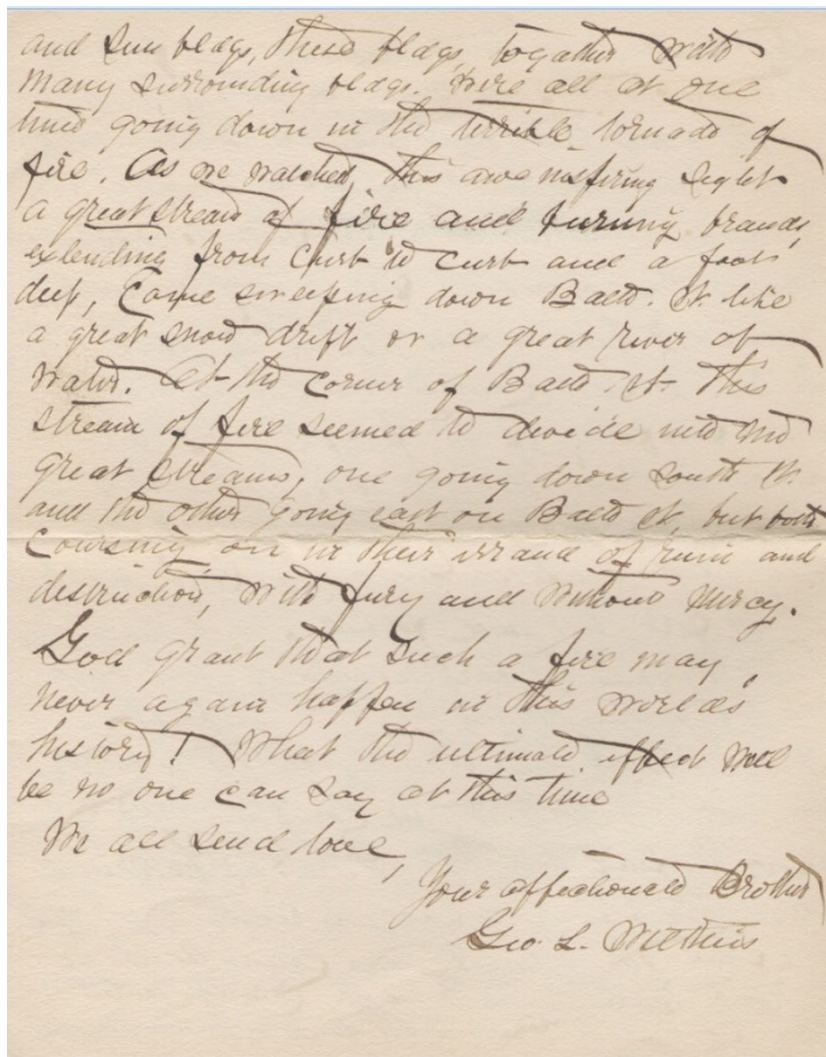 and Sun bldgs, these bldgs, together with
many surrounding bldgs. were all at one
time going down in the terrible tornado of
fire. As we watched this awe inspiring sight
a great stream of fire and burning brands,
extending from curb to curb and a foot
deep, came sweeping down Balto. St. like
a great snow drift or a great river of
water. At the corner of Balto St. this
stream of fire seemed to divide into two
great streams, one going down South St.
and the other going east on Balto St, but both
coursing on in their errand of ruin and
destruction, with fury and without mercy.
God grant that such a fire may
never again happen in this world's
history! What the ultimate effect will
be no one can say at this time
We all send love,
Your affectionate Brother
Geo. L.